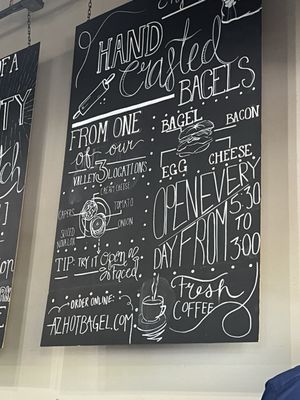 HAND
Crafted
BAGELS
FROM ONE
of our
VALLEY 3 LOCATIONS
CREAM CHEESE
CAPERS
TOMATO
SLICED
NOVA LOX
ONION
TIP: TRY IT Open
Faced
ORDER ONLINE:
AZHOTBAGEL.COM
BAGEL
BACON
EGG
CHEESE
OPEN EVERY
DAY FROM
5:30
TO
3:00
Fresh
COFFEE
OF A